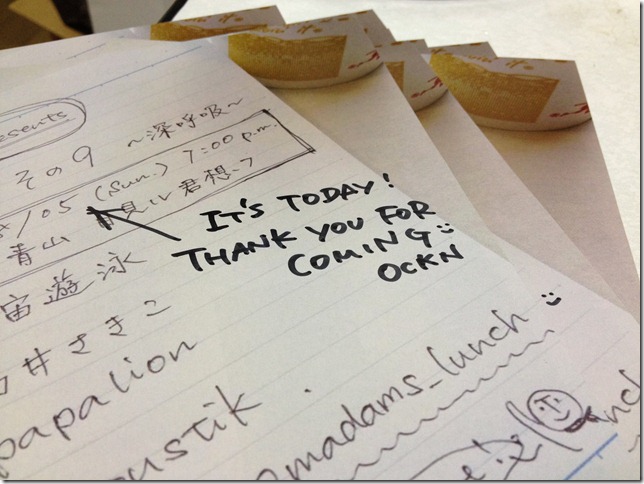 esents
その9 ~深呼吸~
/05 (Sun.) 7:00 p.m.
青山 月見ル君想フ
IT'S TODAY!
THANK YOU FOR
COMING :)
OCKN
宙遊泳
井さきこ
papalion
ustik
madams_lunch :)
nch